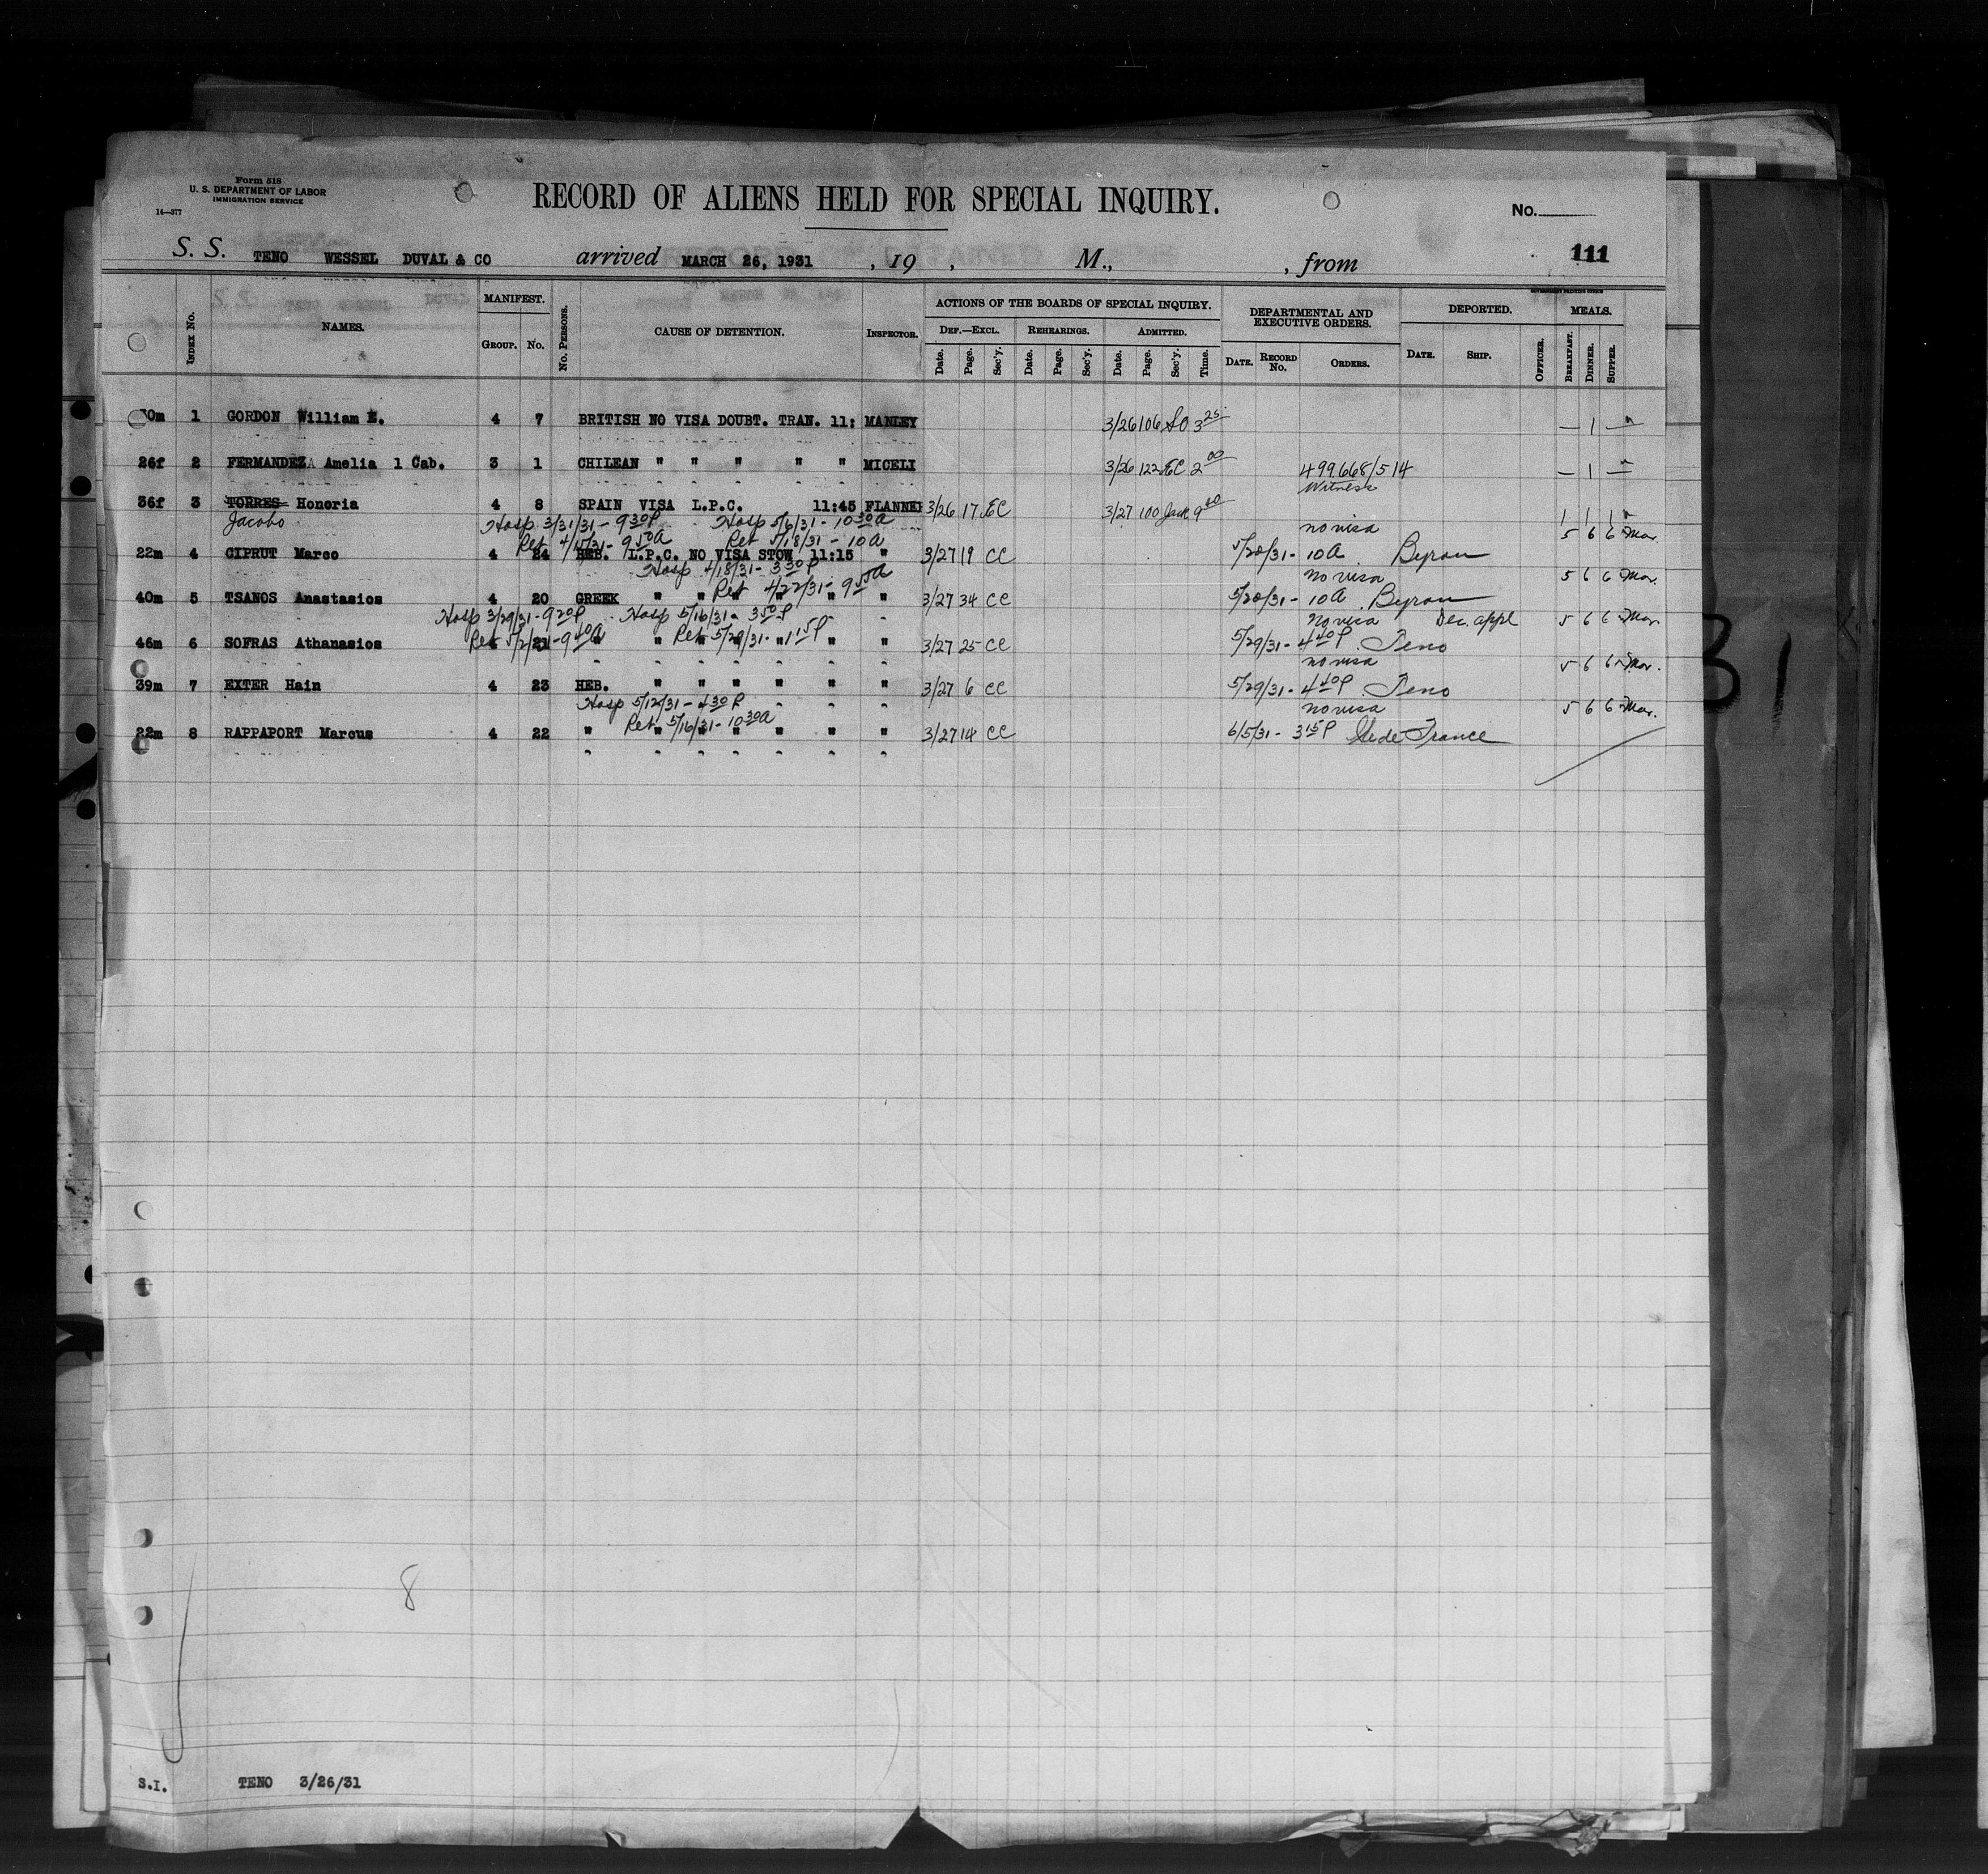 Form 518
U. S. DEPARTMENT OF LABOR
IMMIGRATION SERVICE
14—377
RECORD OF ALIENS HELD FOR SPECIAL INQUIRY.
No.
111
S. S. TENO WESSEL DUVAL & CO arrived MARCH 26, 1931 , 19 , M., , from
GOVERNMENT PRINTING OFFICE
INDEX No. NAMES. MANIFEST. GROUP. No. No. PERSONS. CAUSE OF DETENTION. INSPECTOR. ACTIONS OF THE BOARDS OF SPECIAL INQUIRY. DEPARTMENTAL AND EXECUTIVE ORDERS. DEPORTED. MEALS.
DEF.—EXCL. REHEARINGS. ADMITTED.
Date. Page. Sec'y. Date. Page. Sec'y. Date. Page. Sec'y. Time. DATE. RECORD No. ORDERS. DATE. SHIP. OFFICER. BREAKFAST. DINNER. SUPPER.
30m 1 GORDON William E. 4 7 BRITISH NO VISA DOUBT. TRAN. 11: MANLEY 3/26 106 SO 3 25 — 1 —
26f 2 FERMANDEZ Amelia 1 Cab. 3 1 CHILEAN " " " " " MICELI 3/26 122 EC 2 00 499668/514 — 1 —
Witness
36f 3 TORRES Honoria 4 8 SPAIN VISA L.P.C. 11:45 FLANNE 3/26 17 EC 3/27 100 Jack 9 40 1 1 1
Jacobo Hosp 3/31/31 - 9 30 P Hosp 5/6/31 - 10 30 A no visa 5 6 6 Mar.
Ret 4/15/31 - 9 50 A Ret 5/18/31 - 10 A
22m 4 CIPRUT Marco 4 24 HEB. L.P.C. NO VISA STOW 11:15 " 3/27 19 CC 5/20/31 - 10 A Byron
Hosp 4/18/31 - 3 30 P no visa 5 6 6 Mar.
Ret 4/22/31 - 9 55 A
40m 5 TSANOS Anastasios 4 20 GREEK " " " " " " 3/27 34 CC 5/20/31 - 10 A Byron
Hosp 3/29/31 - 9 20 P Hosp 5/16/31 - 3 50 P no visa Dec. appl 5 6 6 Mar.
Ret 5/2/31 - 9 40 A Ret 5/29/31 - 1 15 P
46m 6 SOFRAS Athanasios 4 21 " " " " " " " 3/27 25 CC 5/29/31 - 4 40 P Teno
no visa 5 6 6 Mar.
39m 7 EXTER Hain 4 23 HEB. " " " " " " 3/27 6 CC 5/29/31 - 4 40 P Teno
Hosp 5/12/31 - 4 30 P no visa 5 6 6 Mar.
Ret 5/16/31 - 10 30 A
22m 8 RAPPAPORT Marcus 4 22 " " " " " " " 3/27 14 CC 6/5/31 - 3 15 P Ile de France
31
8
S.I. TENO 3/26/31